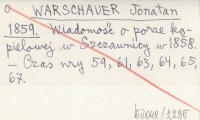 o WARSCHAUER Jonatan
1859. Wiadomość o porze ką-
pielowej w Szczawnicy w 1858.
– Czas nry 59, 61, 63, 64, 65,
67.